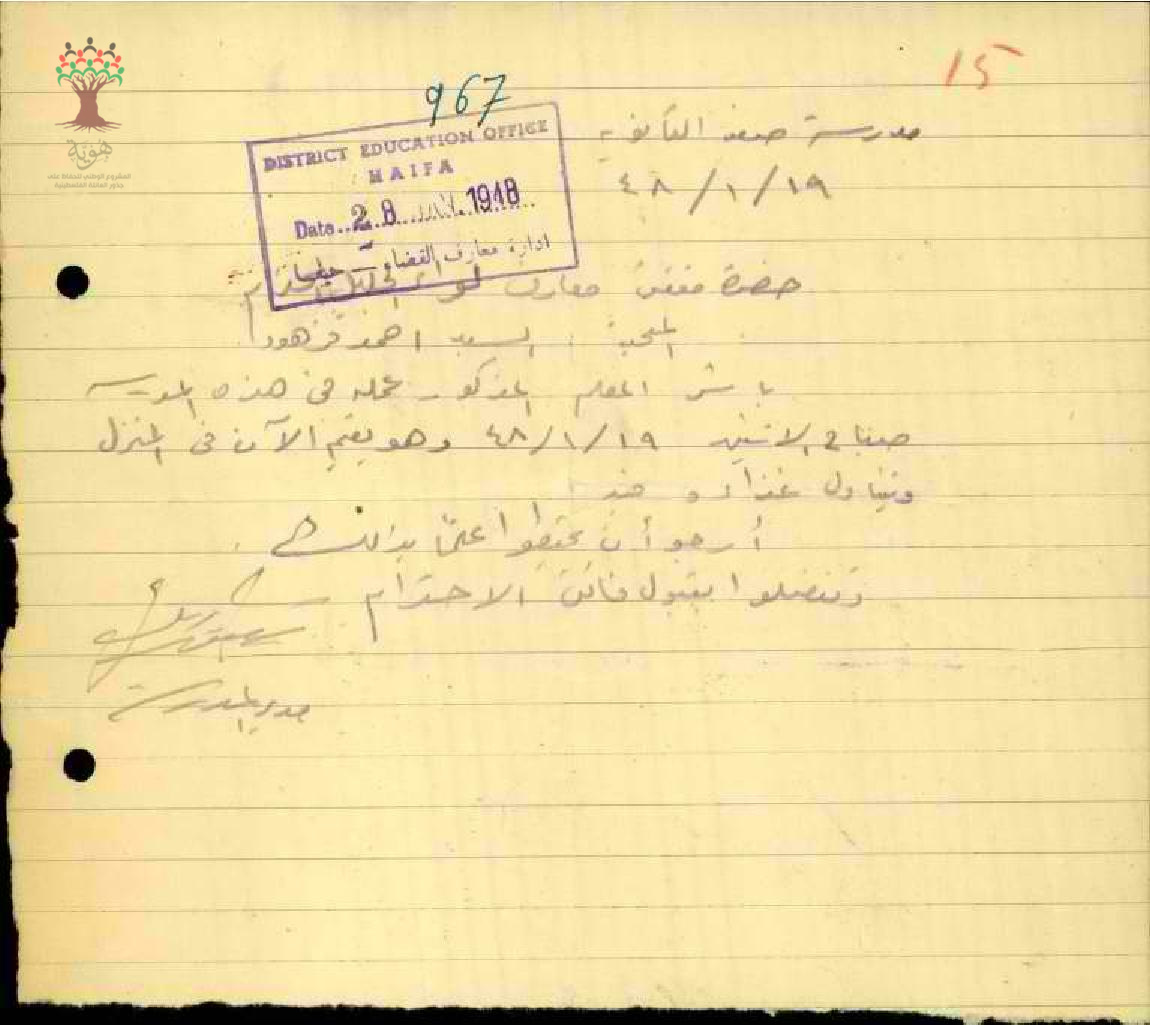 هوية
المشروع الوطني للحفاظ على
جذور العائلة الفلسطينية
15
967
DISTRICT EDUCATION OFFICE
HAIFA
Date 28 JAN. 1948
ادارة معارف القضاء - حيفا
مدرسة صفد الثانوية
٤٨/١/١٩
حضرة مفتش معارف لواء الجليل المحترم
السيد احمد فرهود
باشر المعلم المذكور عمله في هذه المدرسة
صباح الاثنين ٤٨/١/١٩ وهو يقيم الآن في المنزل
ويتناول غذاءه فيه
أرجو أن تحيطوا علمًا بذلك
وتفضلوا بقبول فائق الاحترام
مدير المدرسة